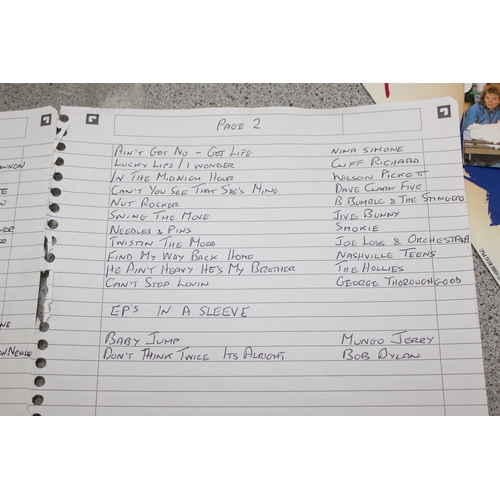 PAGE 2
AIN'T GOT NO - GOT LIFE NINA SIMONE
LUCKY LIPS / I WONDER CLIFF RICHARD
IN THE MIDNIGH HOUR WILSON PICKETT
CAN'T YOU SEE THAT SHE'S MINE DAVE CLARK FIVE
NUT ROCKER B. BUMBLE & THE STINGERS
SWING THE MOVE JIVE BUNNY
NEEDLES & PINS SMOKIE
TWISTIN THE MOOD JOE LOSS & ORCHESTRA
FIND MY WAY BACK HOME NASHVILLE TEENS
HE AIN'T HEAVY HE'S MY BROTHER THE HOLLIES
CAN'T STOP LOVIN GEORGE THOROUGHGOOD
EP'S IN A SLEEVE
BABY JUMP MUNGO JERRY
DON'T THINK TWICE ITS ALRIGHT BOB DYLAN